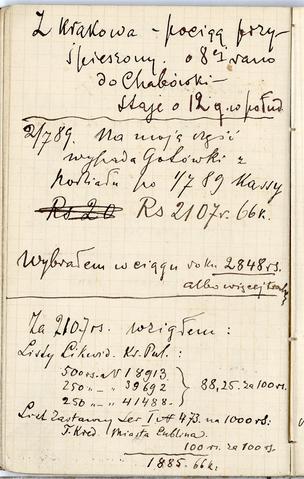 Z Krakowa - pociąg przy-
śpieszony o 8ej rano
do Chabówki -
staje o 12 g. w połud.
2/7 89. Na moją część
wypada Gotówki z
podziału po 1/7 89 Kassy
Rs 20 Rs 2107 r. 66 k.
Wybrałem w ciągu roku 2848 rs.
albo więcej
Za 2107 rs. wziąłem:
Listy Likwid. Kr. Pol.:
500 rs. a N 18913
250 " - " 39692 } 88,25. za 100 rs.
250 " - " 41488.
List Zastawny Ser I N 473. na 1000 rs.
T. Kred. Miasta Lublina.
100 rs. za 100 rs.
1885. 66 k.